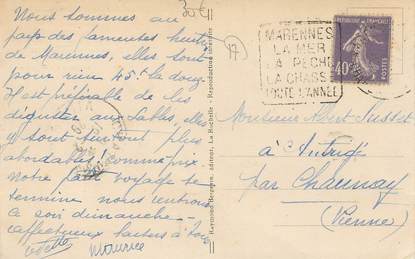 Nous sommes au
pays des fameuses huîtres
de Marennes, elles sont
pour rien 45 f la douz
Il est préférable de les
déguster aux Sables, elles
y sont surtout plus
abordables, comme prix.
Notre petit voyage se
termine nous rentrons
ce soir dimanche
affectueux baisers à tous
Odette Maurice
30€
17
MARENNES
LA MER
LA PÊCHE
LA CHASSE
TOUTE L'ANNÉE
RÉPUBLIQUE FRANÇAISE
40c
POSTES
Raymond Bergevin, éditeur, La Rochelle - Reproduction interdite
Monsieur
à
par Chaunay
(Vienne)